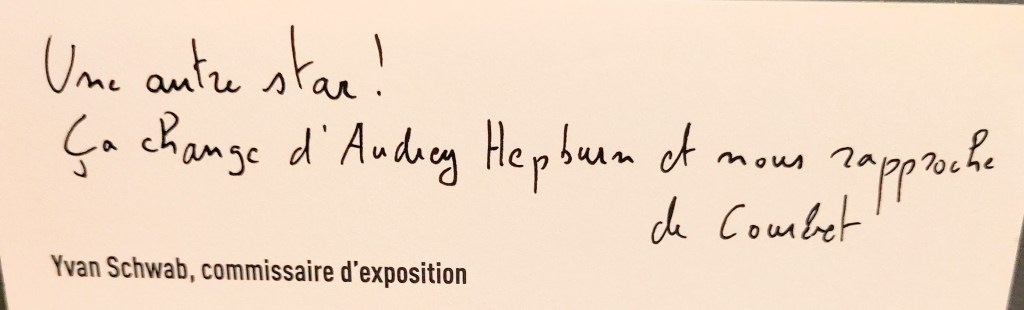 Une autre star !
Ça change d'Audrey Hepburn et nous rapproche
de Courbet
Yvan Schwab, commissaire d'exposition